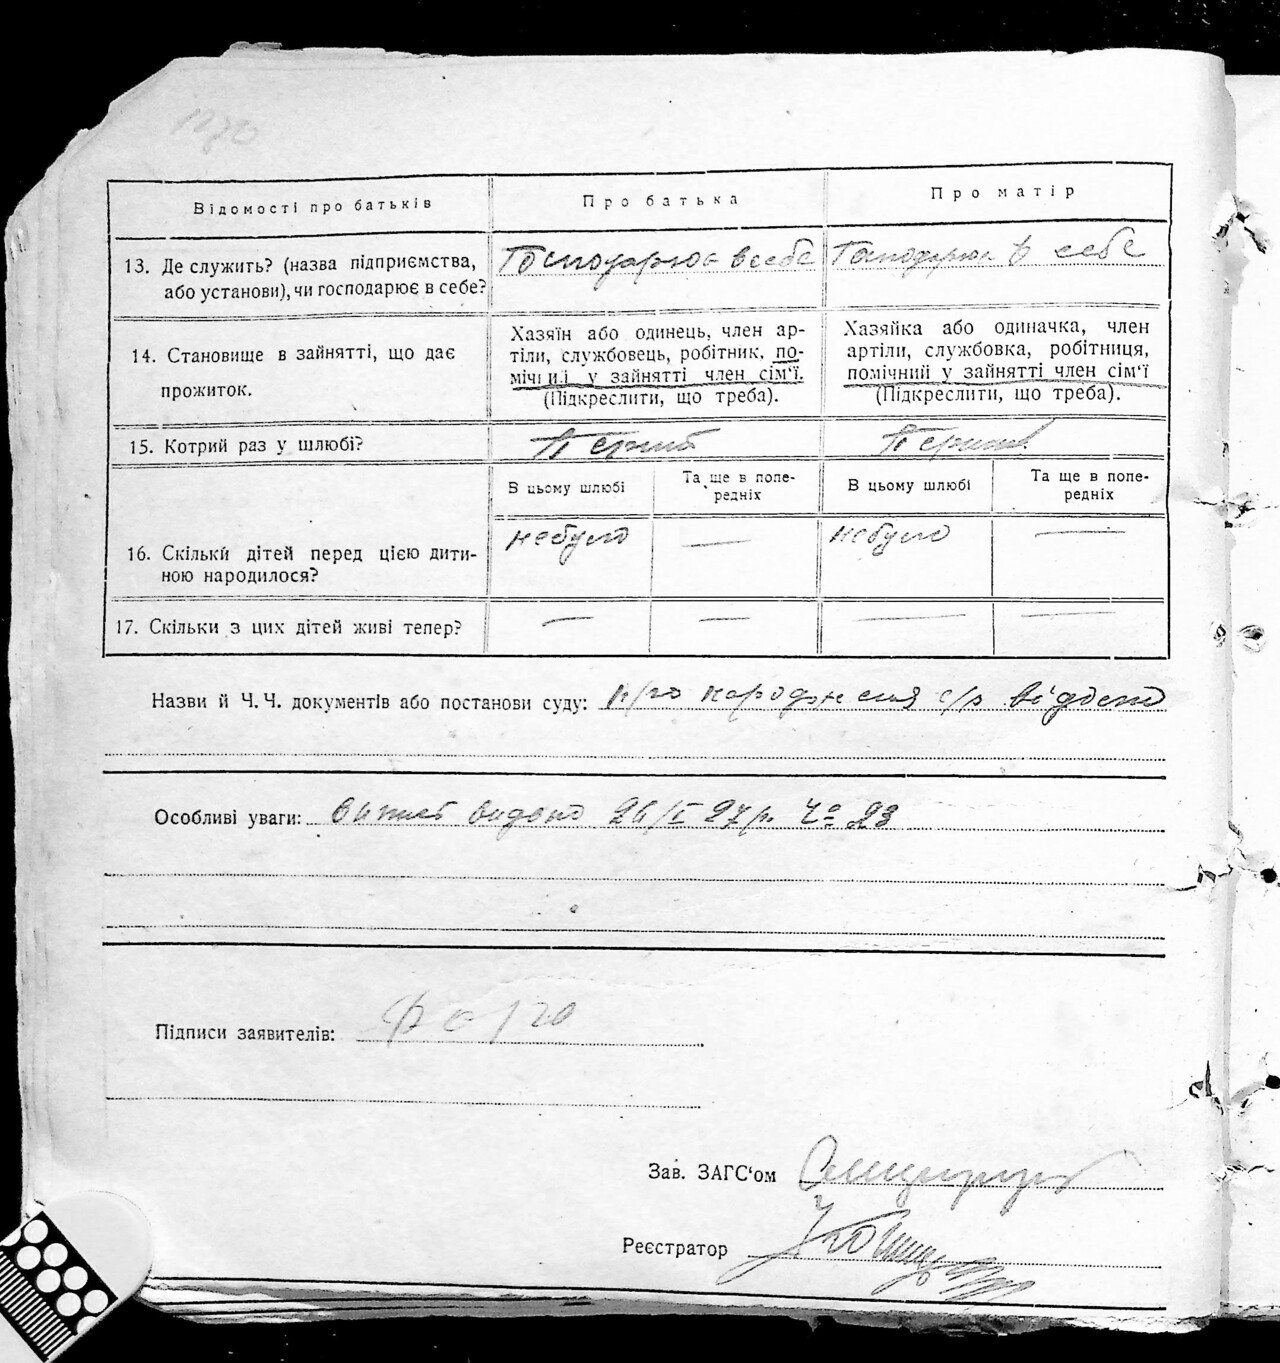 Відомості про батьків
Про батька
Про матір
13. Де служить? (назва підприємства, або установи), чи господарює в себе?
Господарює в себе
Господарює в себе
14. Становище в зайнятті, що дає прожиток.
Хазяїн або одинець, член ар-
тіли, службовець, робітник, по-
мічний у зайнятті член сім'ї.
(Підкреслити, що треба).
Хазяйка або одиначка, член
артіли, службовка, робітниця,
помічний у зайнятті член сім'ї
(Підкреслити, що треба).
15. Котрий раз у шлюбі?
Перший
Перший
В цьому шлюбі
Та ще в попе-
редніх
В цьому шлюбі
Та ще в попе-
редніх
16. Скільки дітей перед цією дити-
ною народилося?
небуло
—
небуло
—
17. Скільки з цих дітей живі тепер?
—
—
—
—
Назви й Ч. Ч. документів або постанови суду: про народження с/р
Особливі уваги: видано 27 р. 23
Підписи заявителів:
Зав. ЗАГС'ом
Реєстратор